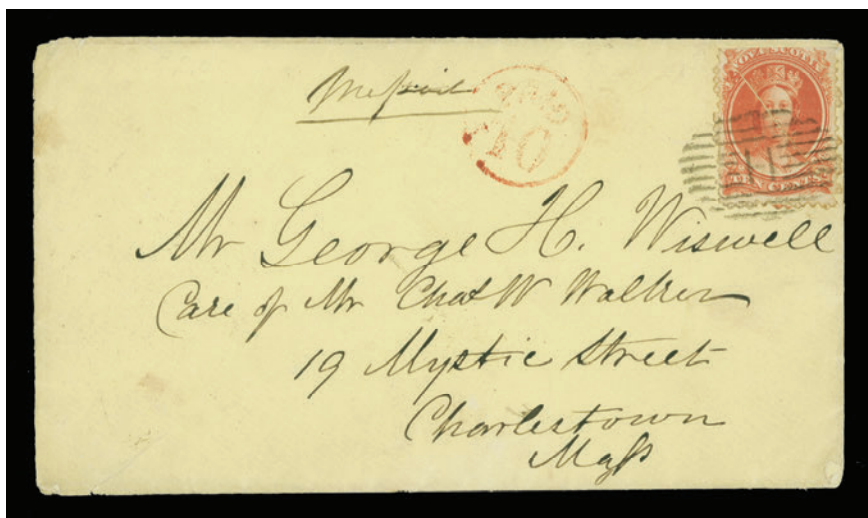 PAID
10
NOVA SCOTIA
TEN CENTS
Mr George H. Wiswell
Care of Mr Chas W Walker
19 Mystic Street
Charlestown
Maſs